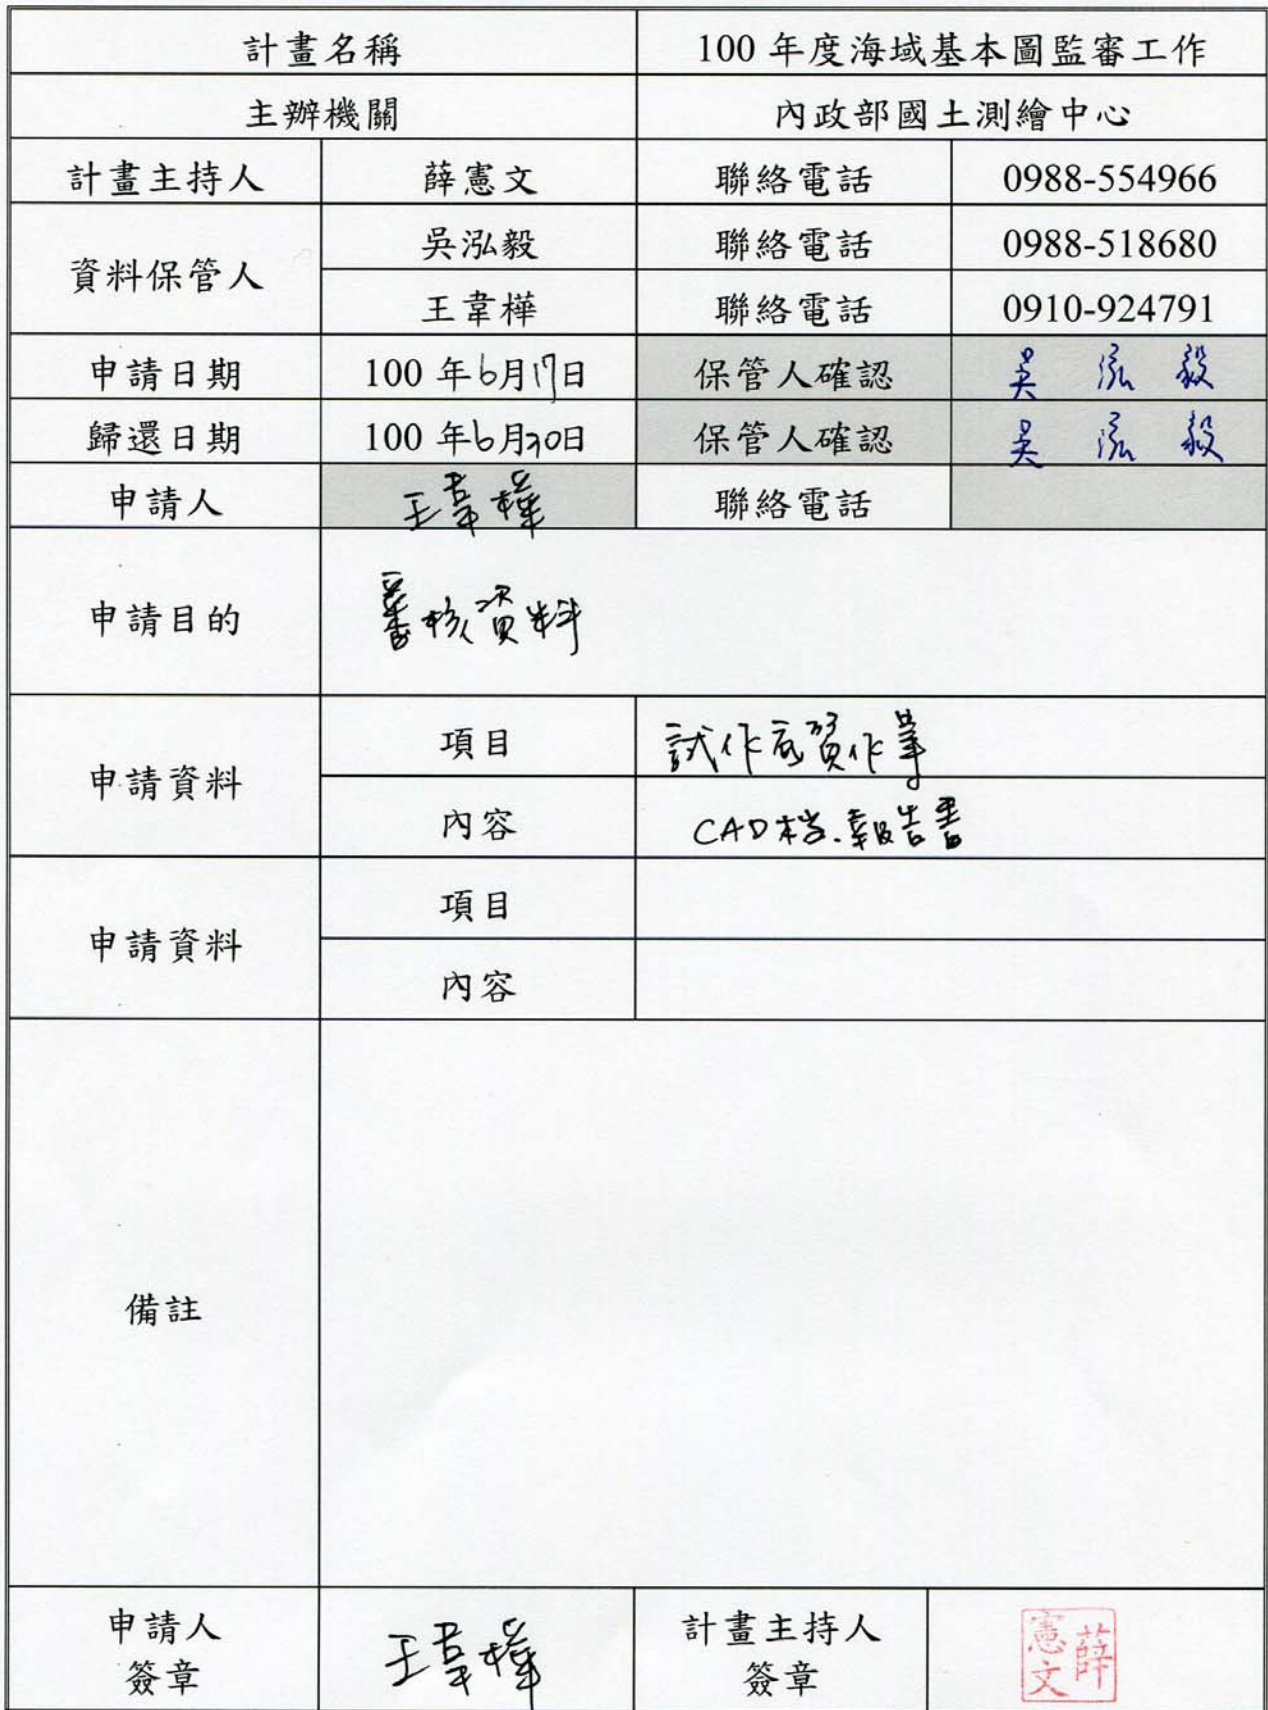 計畫名稱 100 年度海域基本圖監審工作
主辦機關 內政部國土測繪中心
計畫主持人 薛憲文 聯絡電話 0988-554966
資料保管人 吳泓毅 聯絡電話 0988-518680
王韋樺 聯絡電話 0910-924791
申請日期 100 年6月17日 保管人確認 吳泓毅
歸還日期 100 年6月30日 保管人確認 吳泓毅
申請人 王韋樺 聯絡電話
申請目的 審核資料
申請資料 項目 試作 作業
內容 CAD档.報告書
申請資料 項目
內容
備註
申請人 計畫主持人
簽章 王韋樺 簽章 薛憲文